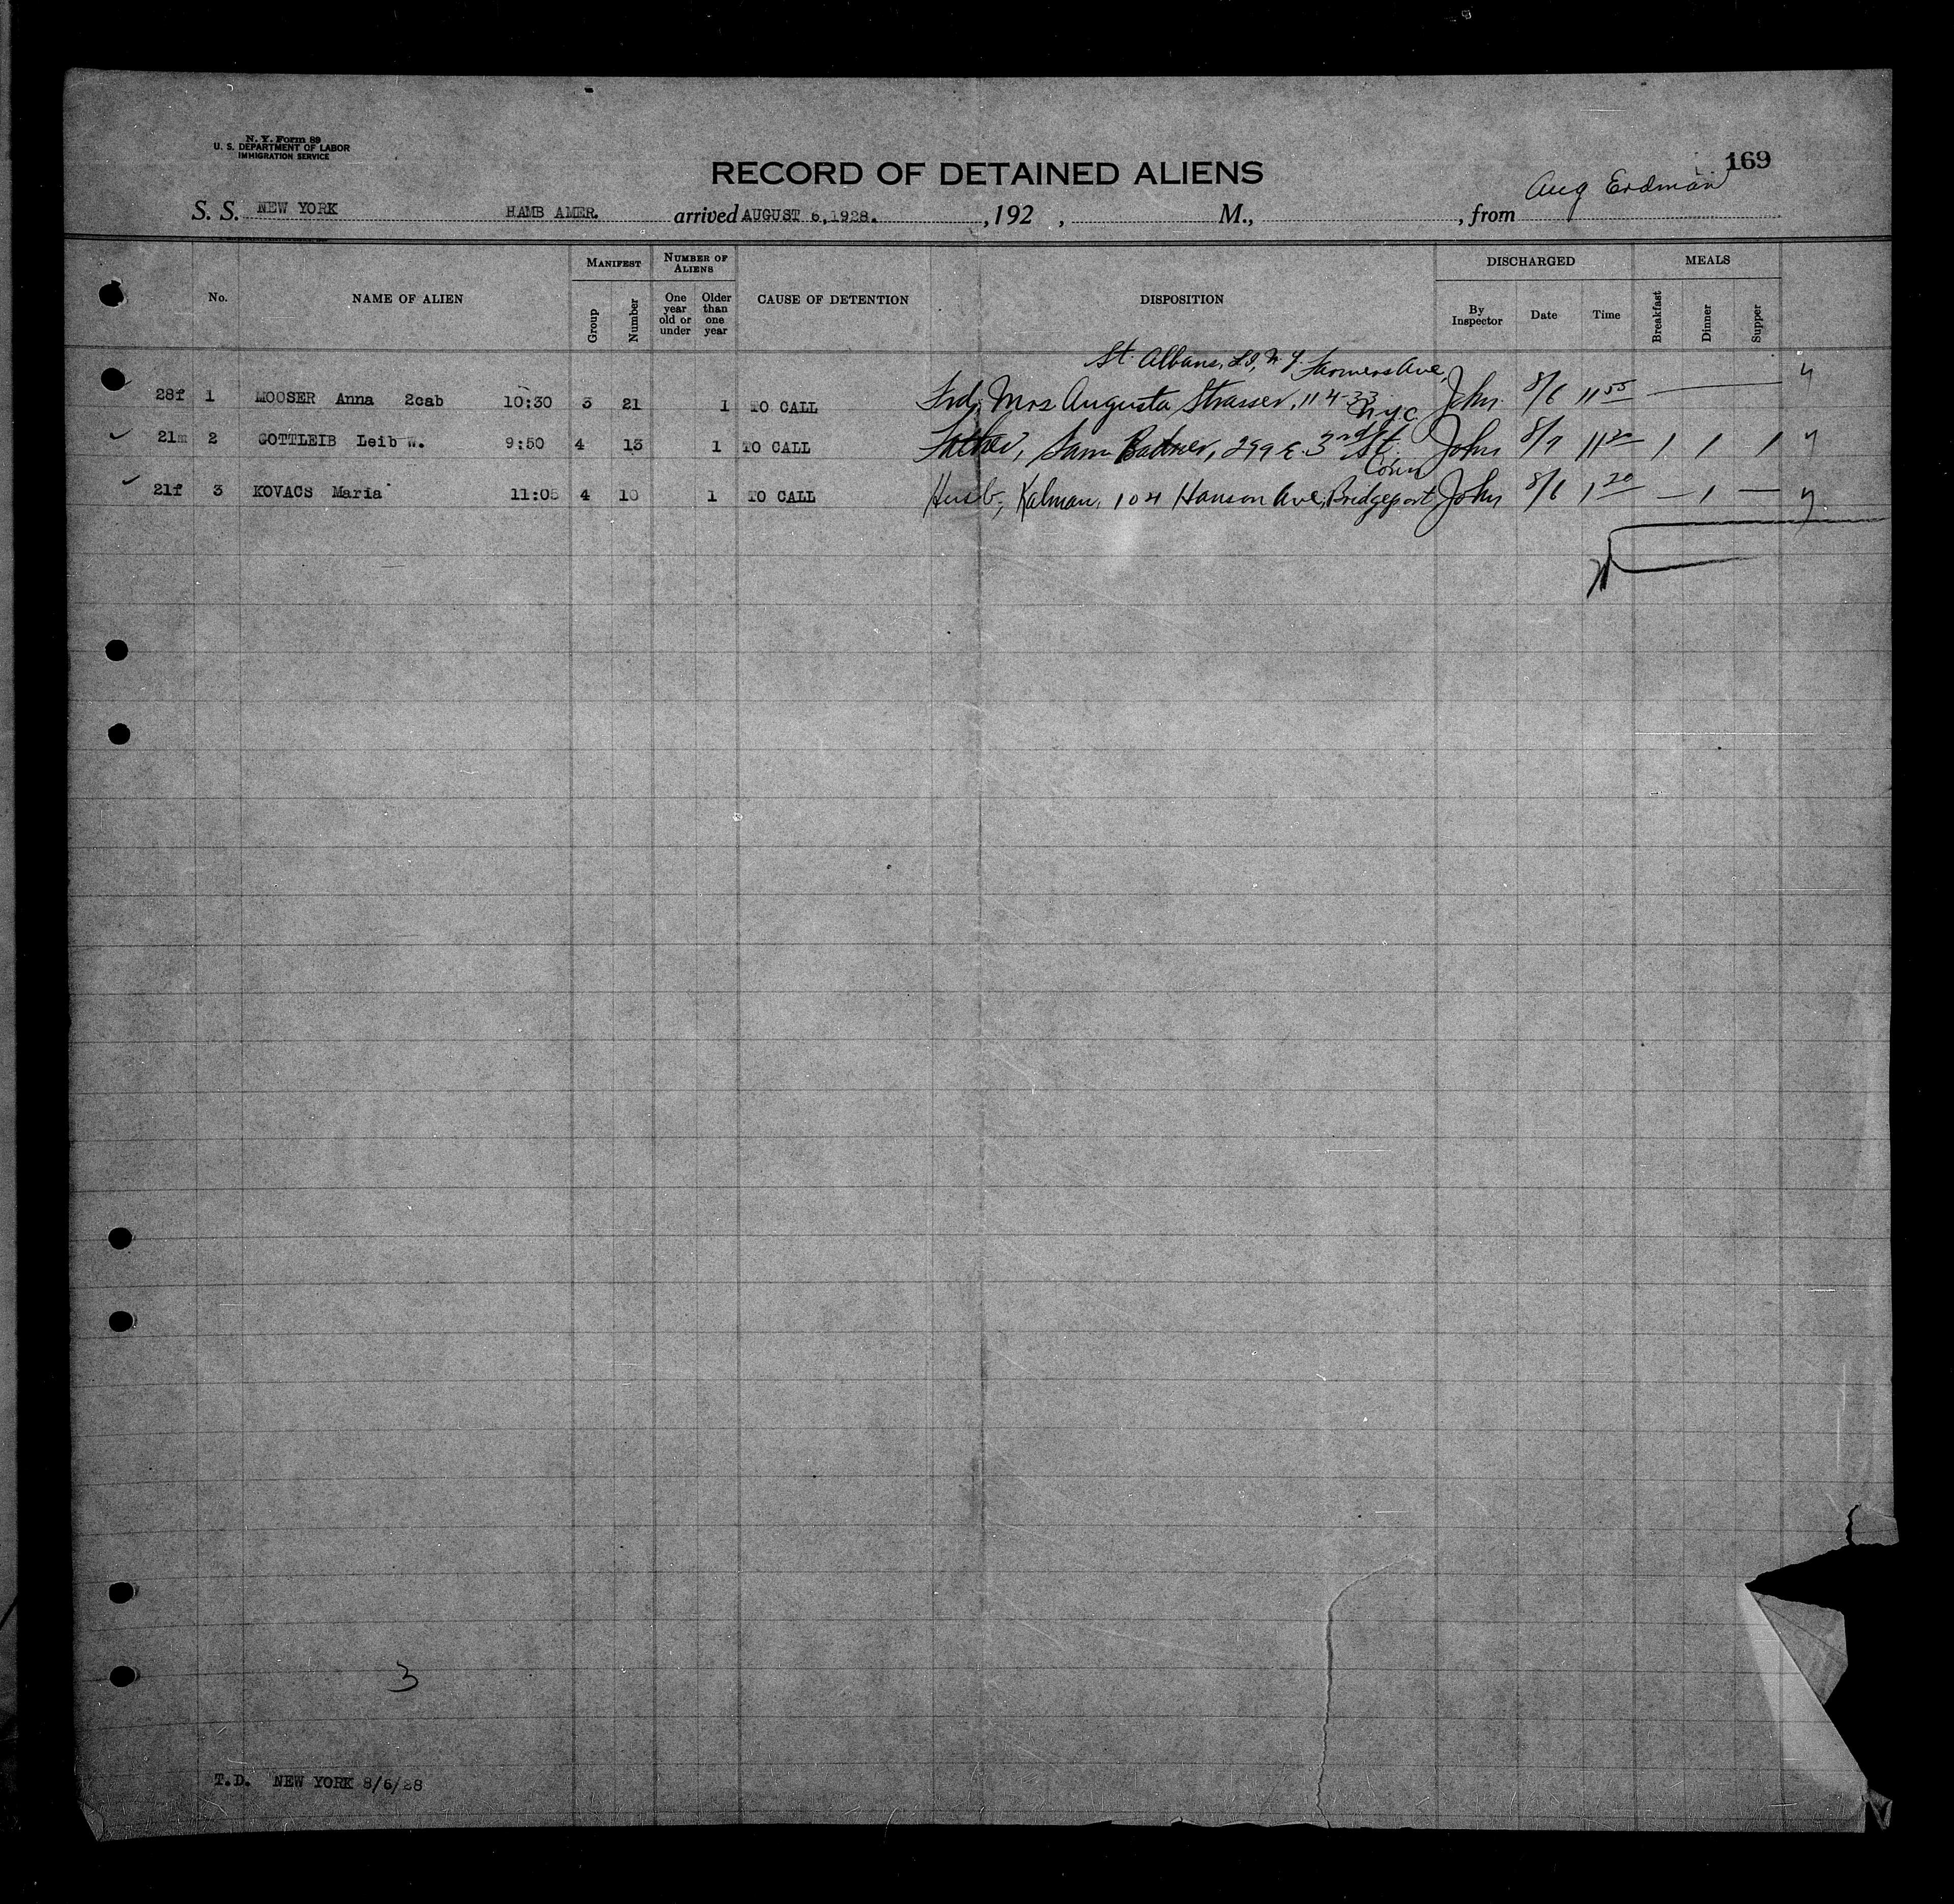 N. Y. Form 89
U. S. DEPARTMENT OF LABOR
IMMIGRATION SERVICE
169
RECORD OF DETAINED ALIENS
Aug Erdman
S. S. NEW YORK HAMB AMER. arrived AUGUST 6,1928. ,192 , M., , from
No. NAME OF ALIEN MANIFEST Group Number NUMBER OF ALIENS One year old or under Older than one year CAUSE OF DETENTION DISPOSITION DISCHARGED By Inspector Date Time MEALS Breakfast Dinner Supper
St. Albans, L.I, N.Y. Farmers Ave,
28f 1 MOOSER Anna 2cab 10:30 3 21 1 TO CALL Frd, Mrs Augusta Strasser, 114-33 John 8/6 11 55 —
NYC
21m 2 GOTTLEIB Leib W. 9:50 4 13 1 TO CALL Father, Sam 299 E. 3rd St. John 8/7 11 20 1 1 1
Conn
21f 3 KOVACS Maria 11:05 4 10 1 TO CALL Husb, Kalman, 104 Hanson Ave, Bridgeport, John 8/6 1 20 — 1 —
3
T.D. NEW YORK 8/6/28